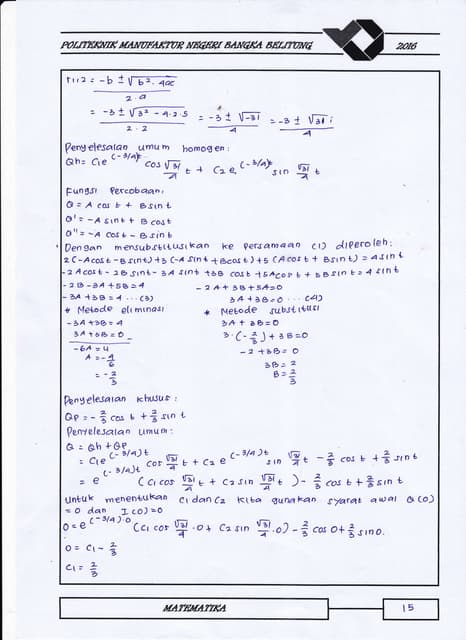 POLITEKNIK MANUFAKTUR NEGERI BANGKA BELITUNG 2016
r1,2 = -b ± √b². 4ac / 2.a
= -3 ± √3² - 4.2.5 / 2.2 = -3 ± √-31 / 4 = -3 ± √31 i / 4
Penyelesaian umum homogen:
Qh = C1e^(-3/4)t cos √31/4 t + C2 e^(-3/4)t sin √31/4 t
Fungsi Percobaan:
Q = A cos t + B sin t
Q' = -A sin t + B cos t
Q'' = -A cos t - B sin t
Dengan mensubstitusikan ke Persamaan (1) diperoleh:
2(-A cos t - B sin t) + 3(-A sin t + B cos t) + 5(A cos t + B sin t) = 4 sin t
-2A cos t - 2B sin t - 3A sin t + 3B cos t + 5A cos t + 5B sin t = 4 sin t
-2B - 3A + 5B = 4 - 2A + 3B + 5A = 0
-3A + 3B = 4 ... (3) 3A + 3B = 0 ... (4)
* Metode eliminasi * Metode substitusi
-3A + 3B = 4 3A + 3B = 0
3A + 3B = 0 - 3.(-2/3) + 3B = 0
-6A = 4 -2 + 3B = 0
A = -4/6 3B = 2
= -2/3 B = 2/3
Penyelesaian khusus:
Qp = -2/3 cos t + 2/3 sin t
Penyelesaian umum:
Q = Qh + Qp
= C1e^(-3/4)t cos √31/4 t + C2 e^(-3/4)t sin √31/4 t - 2/3 cos t + 2/3 sin t
= e^(-3/4)t (C1 cos √31/4 t + C2 sin √31/4 t) - 2/3 cos t + 2/3 sin t
Untuk menentukan C1 dan C2 kita gunakan syarat awal Q(0)
= 0 dan I(0) = 0
0 = e^(-3/4).0 (C1 cos √31/4 .0 + C2 sin √31/4 .0) - 2/3 cos 0 + 2/3 sin 0.
0 = C1 - 2/3
C1 = 2/3
MATEMATIKA 15